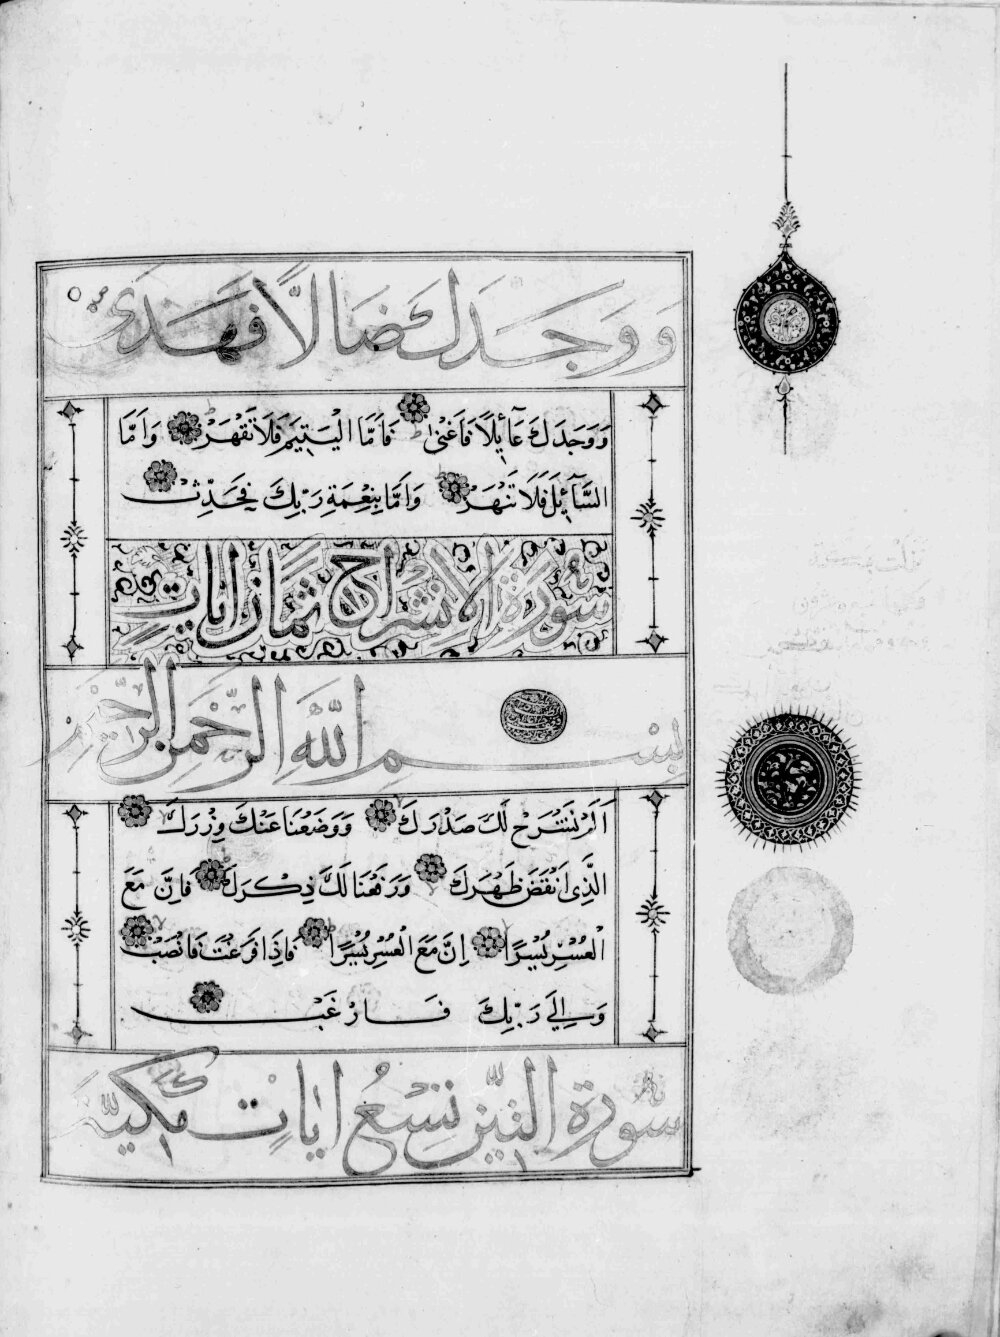 وَوَجَدَكَ ضَالًّا فَهَدَىٰ
وَوَجَدَكَ عَآئِلًا فَاَغْنٰى فَاَمَّا الْيَتِيمَ فَلَا تَقْهَرْ وَاَمَّا
السَّآئِلَ فَلَا تَنْهَرْ وَاَمَّا بِنِعْمَةِ رَبِّكَ فَحَدِّثْ
سُورَةُ الانشراح ثمان ايات
بِسْمِ اللَّهِ الرَّحْمَنِ الرَّحِيمِ
اَلَمْ نَشْرَحْ لَكَ صَدْرَكَ وَوَضَعْنَا عَنْكَ وِزْرَكَ
الَّذِى اَنْقَضَ ظَهْرَكَ وَرَفَعْنَا لَكَ ذِكْرَكَ فَاِنَّ مَعَ
الْعُسْرِ يُسْرًا اِنَّ مَعَ الْعُسْرِ يُسْرًا فَاِذَا فَرَغْتَ فَانْصَبْ
وَاِلَى رَبِّكَ فَارْغَبْ
سُورَةُ التِّينِ تِسْعُ ايَاتٍ مَكِّيَّة